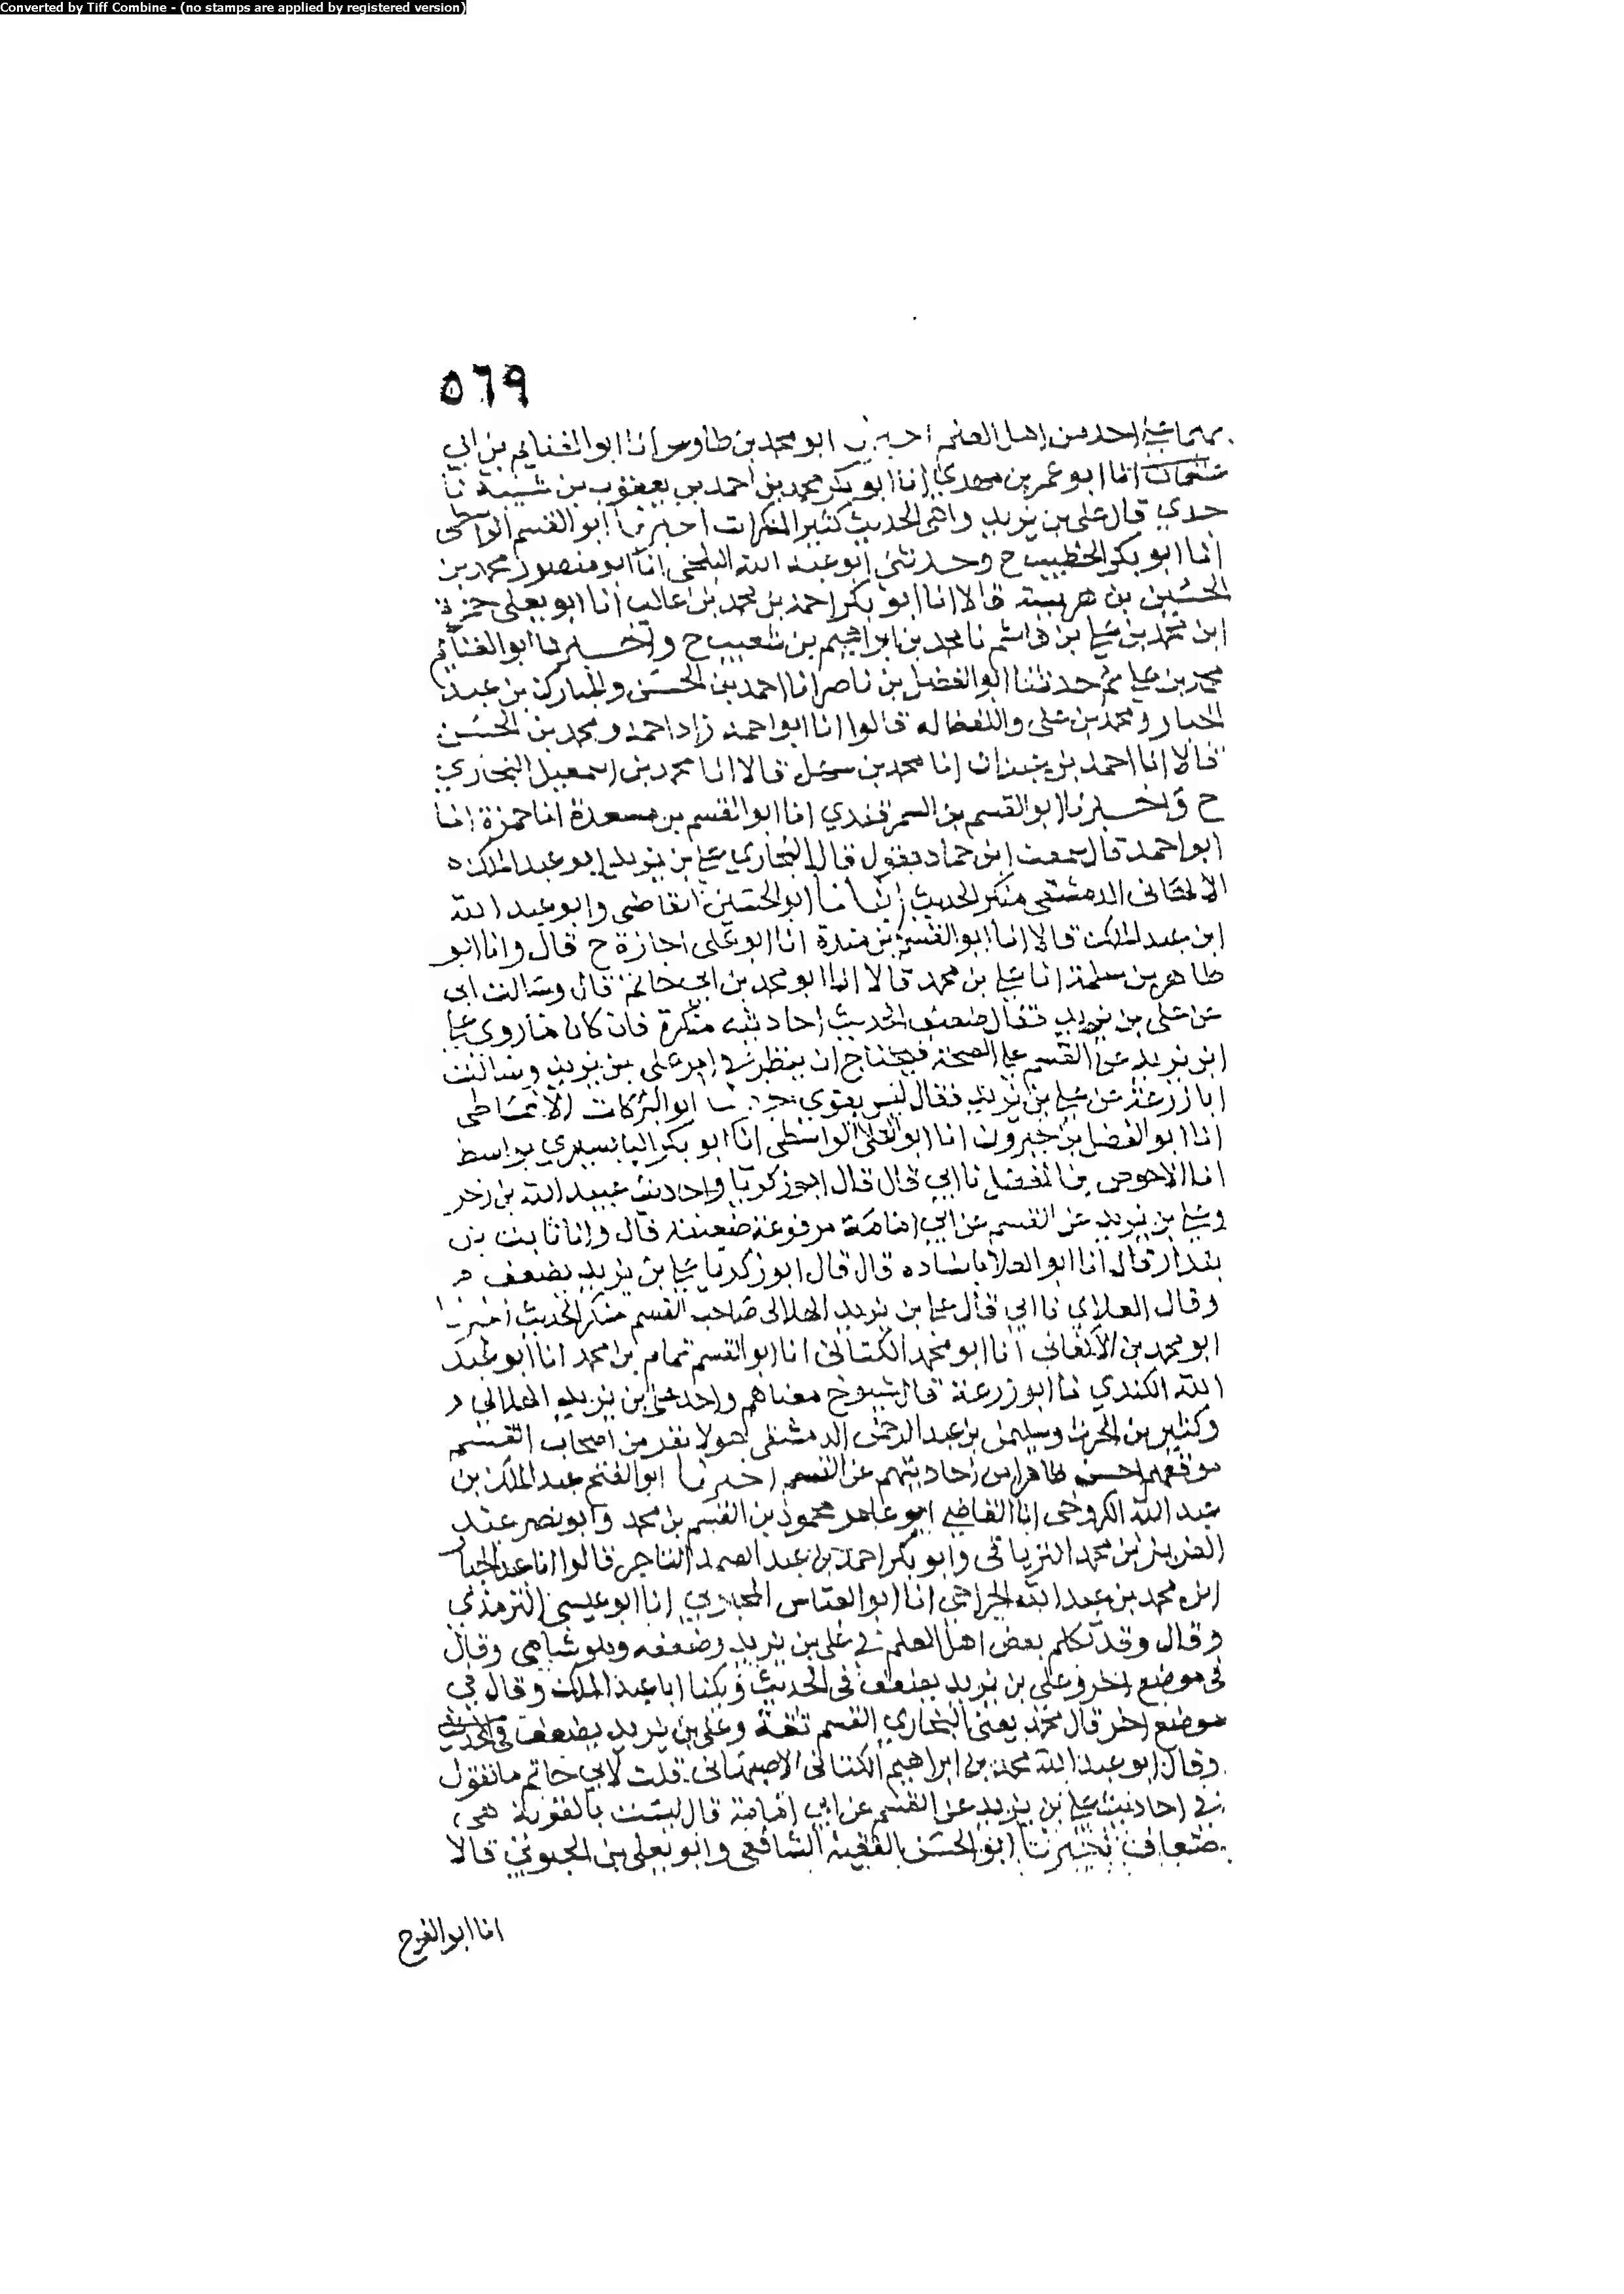 Converted by Tiff Combine - (no stamps are applied by registered version)
٥٦٩
احد من اهل العلم ابو محمد بن طاوس انا ابو الغنايم بن ابي
عثمان انا ابو عمر بن مهدي انا ابو بكر محمد بن احمد بن يعقوب بن شيبة نا
جدي قال علي بن يزيد واهي الحديث كثير المنكرات اخبرنا ابو القسم الواسطي
انا ابو بكر الخطيب ح وحدثني ابو عبد الله البلخي انا ابو منصور محمد بن
الحسين بن هريسة قالا انا ابو بكر احمد بن محمد بن غالب انا ابو يعلى حمزة
ابن محمد بن علي بن هاشم نا محمد بن ابراهيم بن شعيب ح واخبرنا ابو الغنايم
محمد بن علي ثم حدثنا ابو الفضل بن ناصر انا احمد بن الحسن والمبارك بن عبد
الجبار ومحمد بن علي واللفظ له قالوا انا ابو احمد زاد احمد ومحمد بن الحسن
قالا انا احمد بن عبدان انا محمد بن سهل قالا انا محمد بن اسمعيل البخاري
ح واخبرنا ابو القسم بن السمرقندي انا ابو القسم بن مسعدة انا حمزة انا
ابو احمد قال سمعت ابن حماد يقول قال البخاري علي بن يزيد ابو عبد الملك
الالهاني الدمشقي منكر الحديث انبانا ابو الحسين القاضي وابو عبد الله
ابن عبد الملك قالا انا ابو القسم بن مندة انا ابو علي اجازة ح قال وانا ابو
طاهر بن سلمة انا علي بن محمد قالا انا ابو محمد بن ابي حاتم قال وسالت ابي
عن علي بن يزيد فقال ضعيف الحديث احاديثه منكرة فان كان ما روى علي
ابن يزيد عن القسم على الصحة فيحتاج ان ينظر في امر علي بن يزيد وسالت
ابا زرعة عن علي بن يزيد فقال ليس بقوي ابو البركات الانماطي
انا ابو الفضل بن خيرون انا ابو العلا الواسطي انا ابو بكر البابسيري بواسط
انا الاحوص بن المفضل نا ابي قال قال ابو زكريا واحاديث عبيد الله بن زحر
وعلي بن يزيد عن القسم عن ابي امامة مرفوعة ضعيفة قال وانا ثابت بن
بندار قال انا ابو العلا باسناده قال قال ابو زكريا علي بن يزيد يضعف
وقال الغلابي نا ابي قال علي بن يزيد الهلالي صاحب القسم منكر الحديث اخبرنا
ابو محمد بن الاكفاني انا ابو محمد الكتاني انا ابو القسم تمام بن محمد انا ابو عبد
الله الكندي نا ابو زرعة قال شيوخ معناهم واحد علي بن يزيد الهلالي
وكثير بن الحرث وسليمن بن عبد الرحمن الدمشقي هولا نفر من اصحاب القسم
موقعهم احسن ظاهرا من احاديثهم عن القسم اخبرنا ابو الفتح عبد الملك بن
عبد الله الكروخي انا القاضي ابو عامر محمود بن القسم بن محمد وابو نصر عبد
العزيز بن محمد الترياقي وابو بكر احمد بن عبد الصمد التاجر قالوا انا عبد الجبار
ابن محمد بن عبد الله الجراحي انا ابو العباس المحبوبي انا ابو عيسى الترمذي
وقال وقد تكلم بعض اهل العلم في علي بن يزيد وضعفه وهو شامي وقال
في موضع اخر وعلي بن يزيد يضعف في الحديث ويكنا ابا عبد الملك وقال في
موضع اخر قال محمد يعني البخاري القسم ثقة وعلي بن يزيد يضعف في الحديث
وقال ابو عبد الله محمد بن ابراهيم الكتاني الاصبهاني قلت لابي حاتم ما تقول
في احاديث علي بن يزيد عن القسم عن ابي امامة قال ليست بالقوية هي
ضعاف اخبرنا ابو الحسن الفقيه الشافعي وابو يعلى بن الحبوبي قالا
انا ابو الفرج